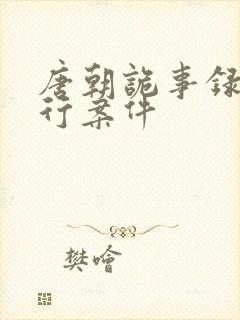 唐朝詭事錄
行案件
樊噲